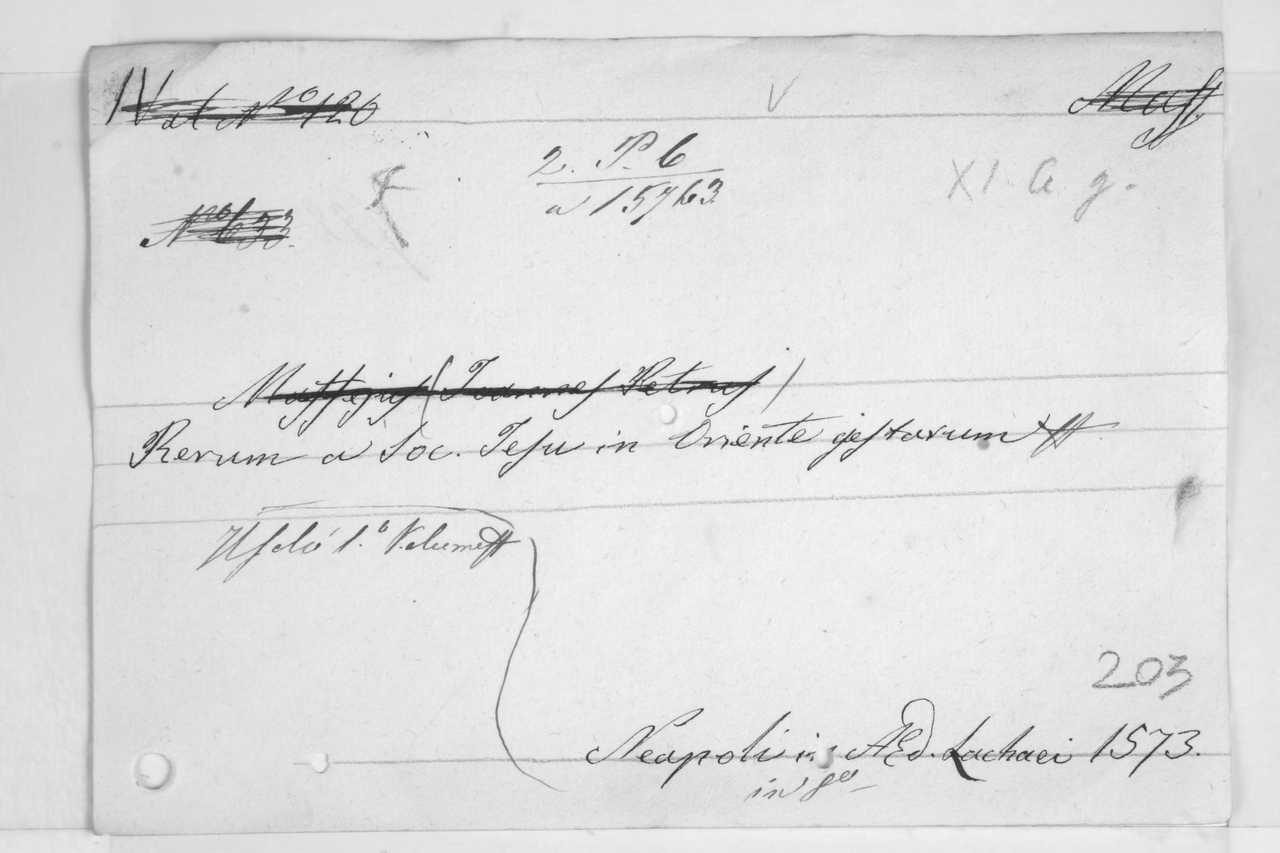 IVat No 126
Maff
V
2. P. 6
a 15763
XI. a g.
No 633.
Maffejus (Joannes Petrus)
Rerum a Soc. Jesu in Oriente gestarum
1.o Volume
203
Neapoli in ÆD. Lachaei 1573.
in 8vo